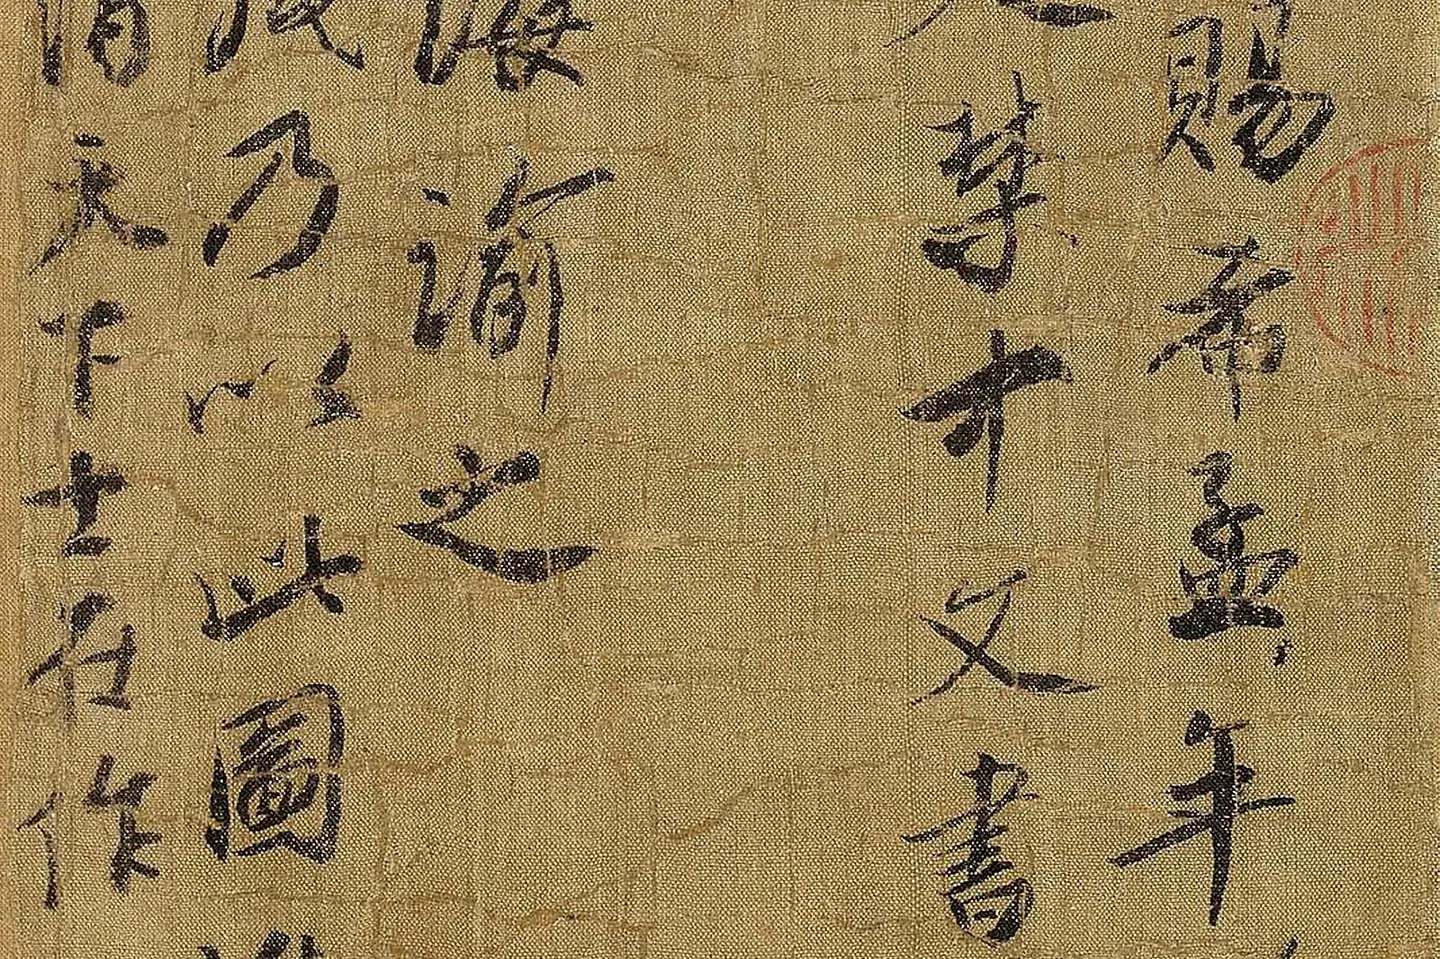 賜希孟年
禁中文書
誨諭之
乃以此圖
天下士在作